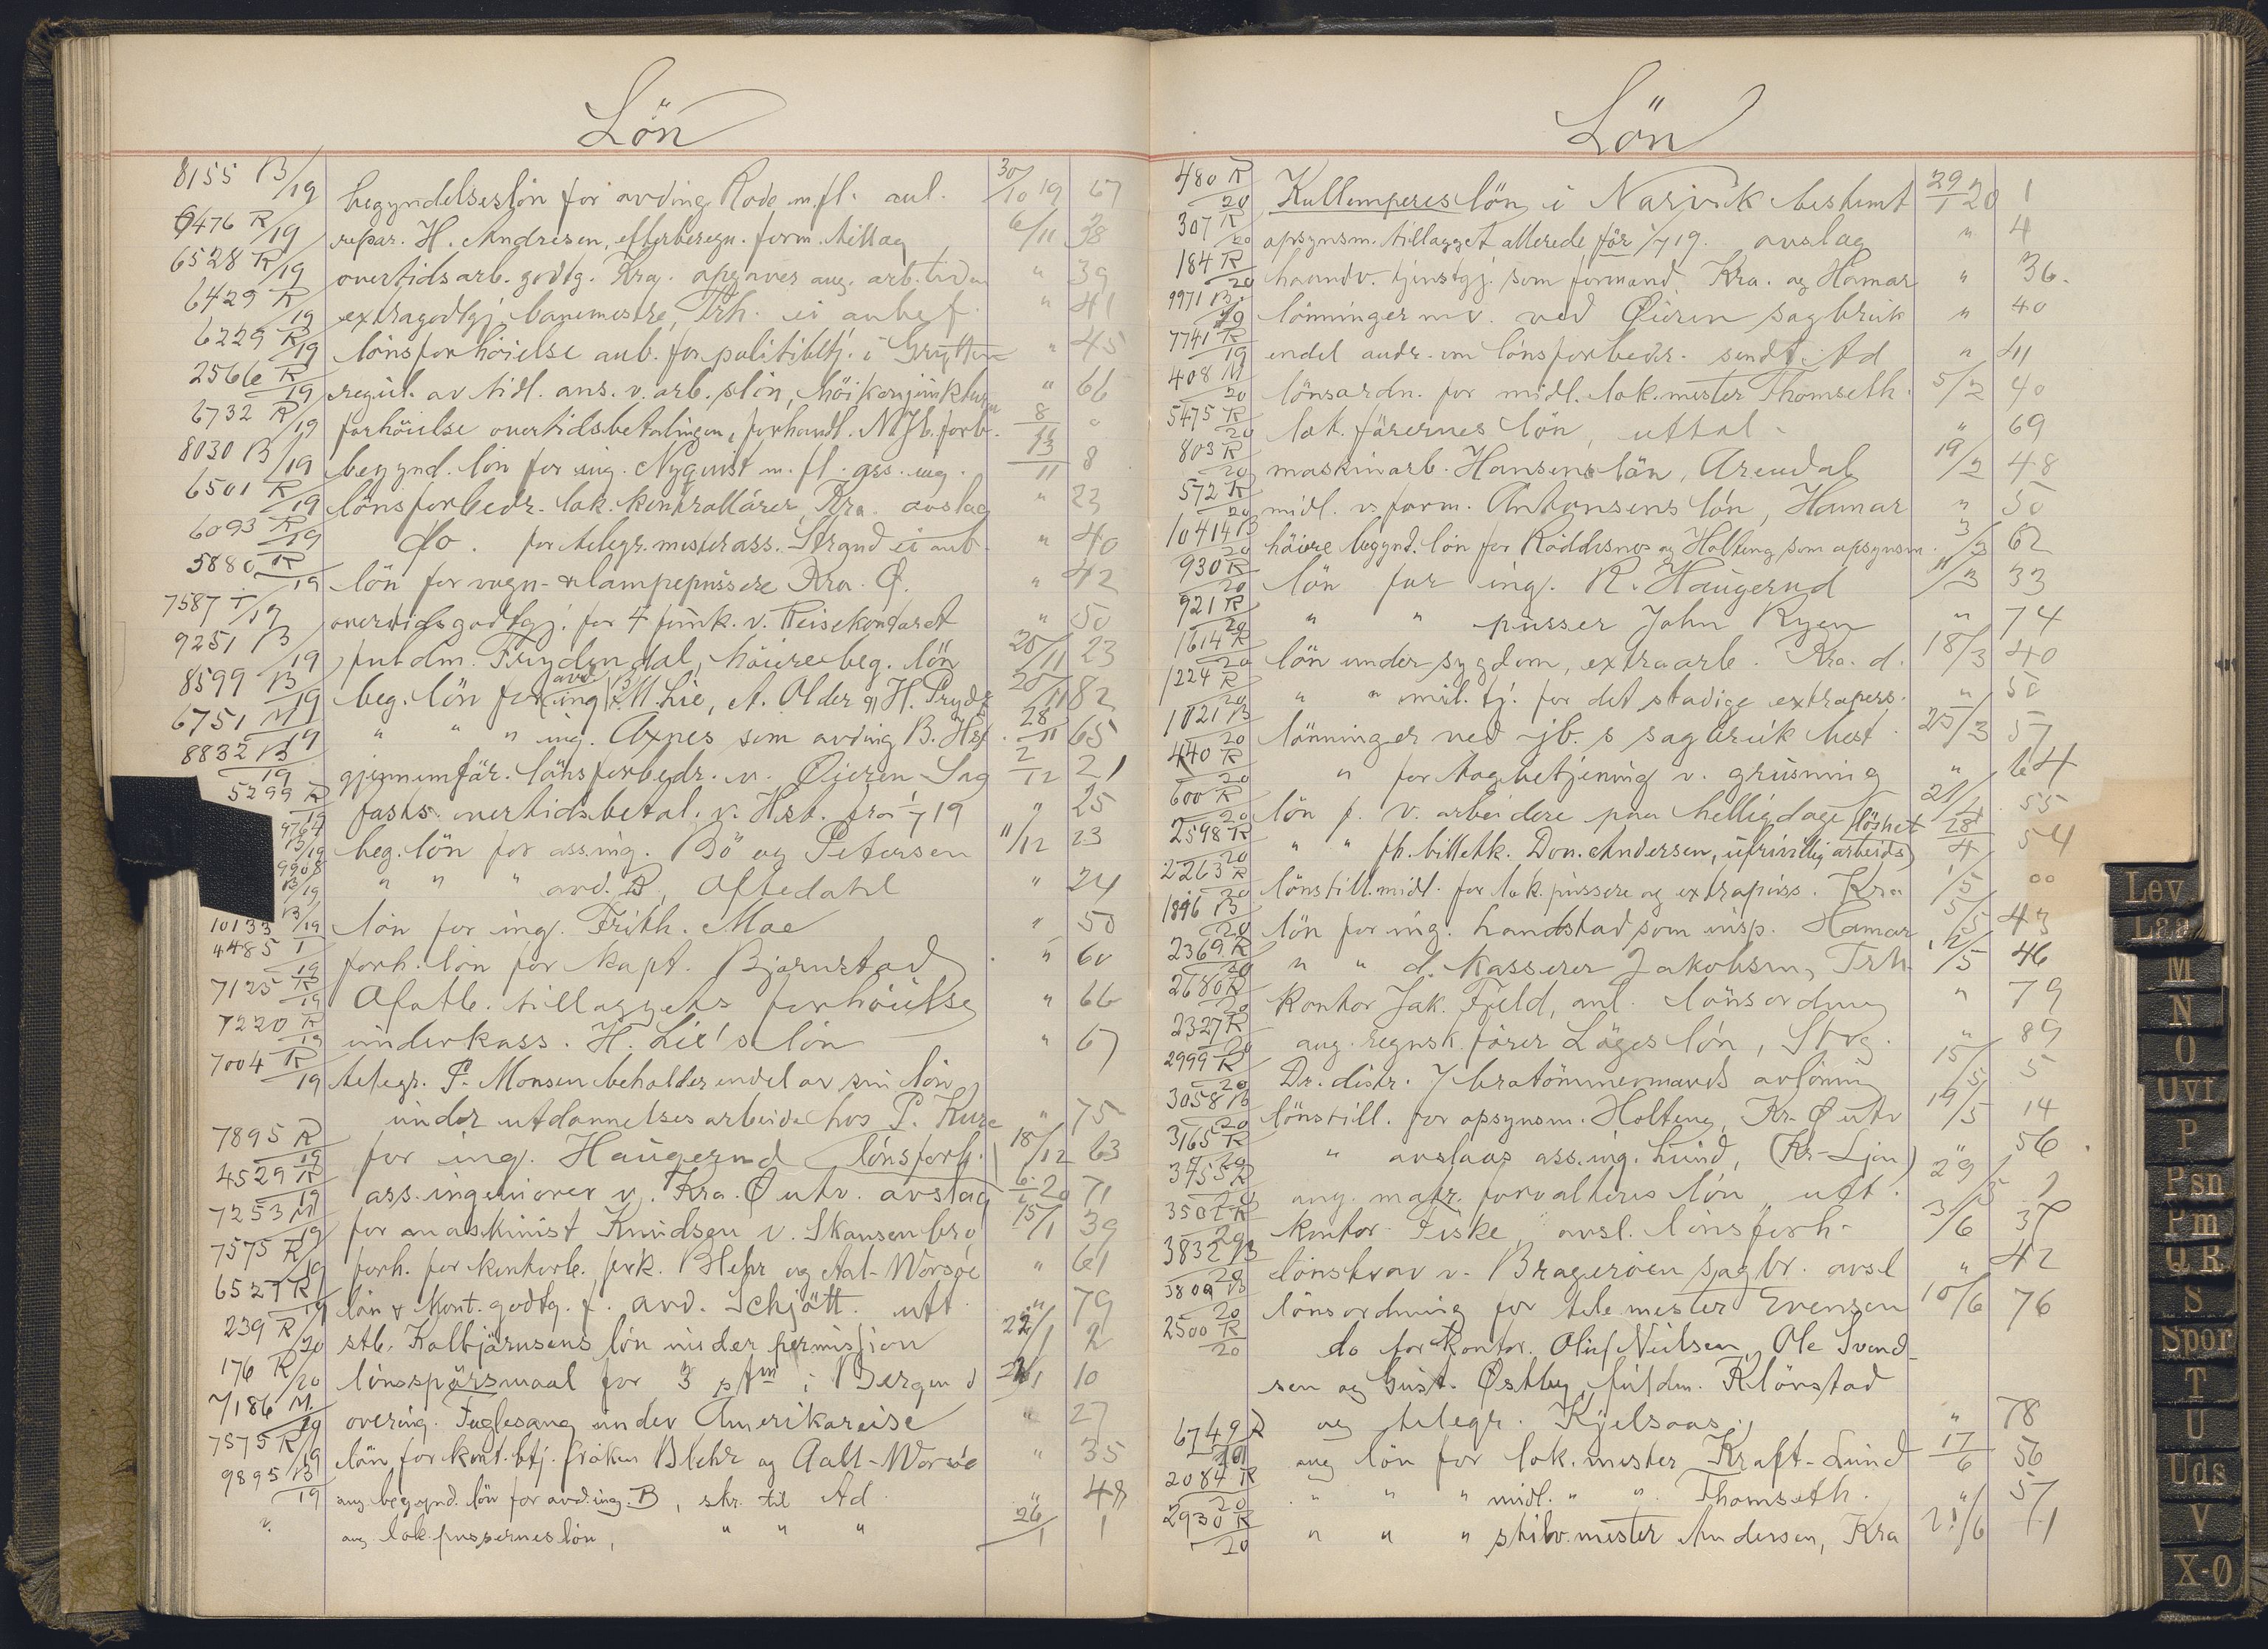 Lön
8155 B/19 begyndelseslön for avding. Rode m.fl. anl. 30/10 19 67
6476 R/19 repar. H. Andresen, efterberegn. form. tillæg 6/11 38
6528 R/19 overtidsarb. godtg. Kra. opgaver ang. arb.tiden " 39
6429 R/19 extragodtgj. banemestre, Trh. ei anbef. " 41
6229 R/19 lönsforhöielse anb. for politibetj. i Grytten " 45
2566 R/19 regul. av tidl. ans. v. arb. slön, höikonjunktur " 66
6732 R/19 forhöielse overtidsbetalingen, forhandl. N.Jb. forb. 8/11 0
8030 B/19 begynd. lön for ing. Nyquist m. fl. ass. ing. 13/11 8
6501 R/19 lönsforbedr. lok. kontrollörer, Kra. avslag " 23
6093 R/19 do. for telegr.mesterass. Strand ei anb. " 40
5880 R/19 lön for vogn- & lampepussere Kra. Ø. " 42
7587 T/19 overtidsgodtgj. for 4 funk. v. Reisekontoret " 50
9251 B/19 fuldm. Frydendal, höiere beg. lön 20/11 23
8599 B/19 beg. lön for avd. ing. M. Lie, A. Older og H. Prydz 20/11 82
6751 M/19 " " " ing. Axnes som avding B. Hst. 28/11 65
8832 B/19 gjennemför. lönsforbedr. v. Øieren-Sag 2/12 21
5299 R/19 fasts. overtidsbetal. v. Hst. fra 1/7 19 " 25
9764 B/19 beg. lön for ass.ing. Bö og Petersen 11/12 23
9908 B/19 " " " avd. B, Oftedahl " 24
10133 B/19 lön for ing. Frith. Moe " 50
4485 T/19 forh. lön for Kapt. Bjørnstad " 60
7125 R/19 Ofotb. tillæggets forhöielse " 66
7220 R/19 underkass. H. Lie's lön " 67
7004 R/19 telegr. P. Monsen beholder endel av sin lön
under utdannelsesarbeide hos P. Kure " 75
7895 R/19 for ing. Haugerud lönsforh. 18/12 63
4529 R/19 ass.ingeniører v. Kra. Ø utv. avslag 6/1 20 71
7253 M/19 for maskinist Knudsen v. Skansenbro 15/1 39
7575 R/19 forh. for kontorb. frk. Blehr og Aal-Worsöe " 61
6527 R/19 lön & Kont. godtg. f. avd. Schjött. utt. " 79
239 R/20 stb. Kolbjörnsens lön under permission 22/1 2
176 R/20 lönsspörsmaal for 3 sfm i Bergen d 22/1 10
7186 M/19 overing. Fuglesang under Amerikareise " 27
7575 R/19 lön for kont.btj. fröken Blehr og Aall-Worsöe " 35
9895 B/19 ang begynd. lön for avd.ing. B, skr. til Ad. " 48
" ang lok.pussernes lön, " " " 26/1 1
Lön
480 R/20 Kullemperes lön i Narvik bestemt 29/1 20 1
307 R/20 opsynsm. tillægget allerede för 1/7 19. avslag " 4
184 R/20 haandv. tjenstgj. som formand, Kra. og Hamar " 36.
9971 B/19 lönninger m.v. ved Øieren sagbruk " 40
7741 R/19 endel andr. om lönsforbedr. sendt Ad " 41
408 M/20 lönsordn. for midl. lok.mester Thomseth. 5/2 40
5475 R/20 lok. förernes lön, uttal. " 69
803 R/20 maskinarb. Hansens lön, Arendal 19/2 48
572 R/20 midl. v.form. Antonsens lön, Hamar " 50
10414 B/20 höiere begynd. lön for Röddesnes og Holteng som opsynsm. 3/3 62
930 R/20 lön for ing. R. Haugerud 11/3 33
921 R/20 " " pusser John Ryen " 74
1614 R/20 lön under sygdom, extraarb. Kra. d. 18/3 40
1224 R/20 " " mil. tj. for det stadige extrapers. " 50
1021 B/20 lönninger ved jb. s sagbruk best. 25/3 57
440 R/20 " for togbetjening v. grusning " 64
600 R/20 lön f. v. arbeidere paa helligdage 21/4 55
2598 R/20 " " fh. billetk. Don. Andersen, ufrivillig arbeidslöshet 28/4 54
2263 R/20 lönstill. midl. for lok.pussere og extrapuss. Kra 1/5 00
1896 B/20 lön for ing. Landstad som insp. Hamar 5/5 43
2369 R/20 " " d. Kasserer Jakobsen, Trh. 12/5 46
2680 R/20 Kontor Jak. Fjeld, anl. lönsordning " 79
2327 R/20 ang. regnsk.förer Löges lön, Strg. " 89
2999 R/20 Dr. distr. 7 brotömmermænds avlönning 15/5 5
3058 B/20 lönstill. for opsynsm. Holteng, Kr. Ø utv 19/5 14
3165 R/20 " avslaas ass.ing. Lund, (Kr-Ljan) " 56
3455 R/20 ang. matr. forvalteres lön, utt. 29/5 1
3501 R/20 kontor. Fiske, avsl. lönsforh. 3/6 37
3832 B/20 lönskrav v. Brageröen sagbr. avsl " 42
3809 B/20 lönsordning for tele mester Evensen 10/6 76
2500 R/20 do for Kontor. Oluf Nielsen, Ole Svend-
sen og Gust. Østby, fuldm. Klövstad
og telegr. Kjelsaas. " 78
6749 R/19 ang lön for lok.mester Kraft-Lund 17/6 56
2084 R/20 " " " midl. " " Thomseth. " 57
2930 R/20 " " " skiltv.mester Andersen, Kra 21/6 71
Lev
Laa
M
N
O
Ovf
P
Psn
Pm
Q R
S
Spor
T
U
Uds
V
X-Ø